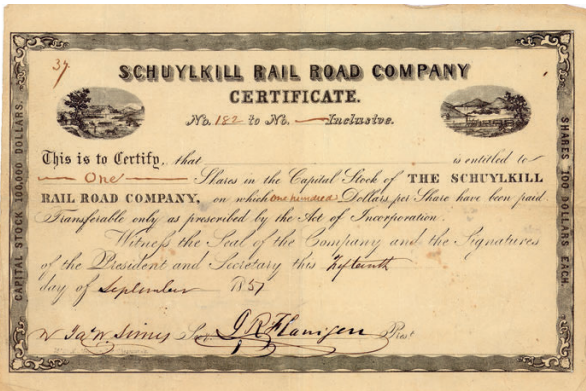 37
SCHUYLKILL RAIL ROAD COMPANY
CERTIFICATE.
No. 182 to No. — Inclusive.
This is to Certify, that is entitled to
— One — Shares in the Capital Stock of THE SCHUYLKILL
RAIL ROAD COMPANY, on which one hundred Dollars per Share have been paid
Transferable only as prescribed by the Act of Incorporation.
Witness the Seal of the Company and the Signatures
of the President and Secretary this Fifteenth
day of September 1857
Jas. W. Simes Sec. J R Flanigen Prest
CAPITAL STOCK 100,000 DOLLARS.
SHARES 100 DOLLARS EACH.